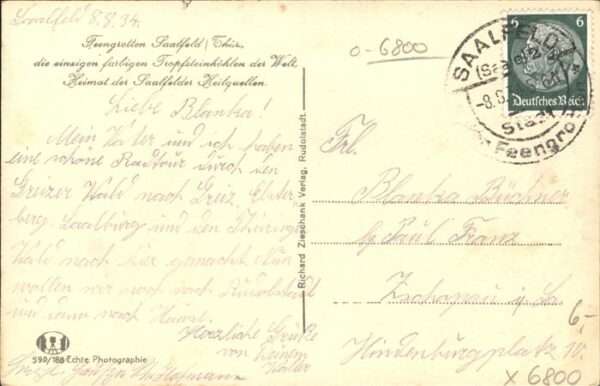 Saalfeld 8.8.34.
Feengrotten Saalfeld / Thür.
die einzigen farbigen Tropfsteinhöhlen der Welt
Heimat der Saalfelder Heilquellen.
Liebe Blanka!
Mein Vater und ich haben
eine schöne Radtour durch den
Greizer Wald nach Greiz, Elster-
berg, Saalburg und den Thüringer
Wald nach hier gemacht. Nun
wollen wir noch nach Rudolstadt
und dann nach Hause.
Herzliche Grüße
von
599/188 Echte Photographie
Richard Zieschank Verlag, Rudolstadt.
0-6800
SAALFELD
(Saale) 2
-8.8.
Stadt
Feengro
6 6
Deutsches Reich
Frl.
Blanka Büchner
b/ Paul Franz
Zschopau i/Sa.
Hindenburgplatz 10.
6,-
X 6800